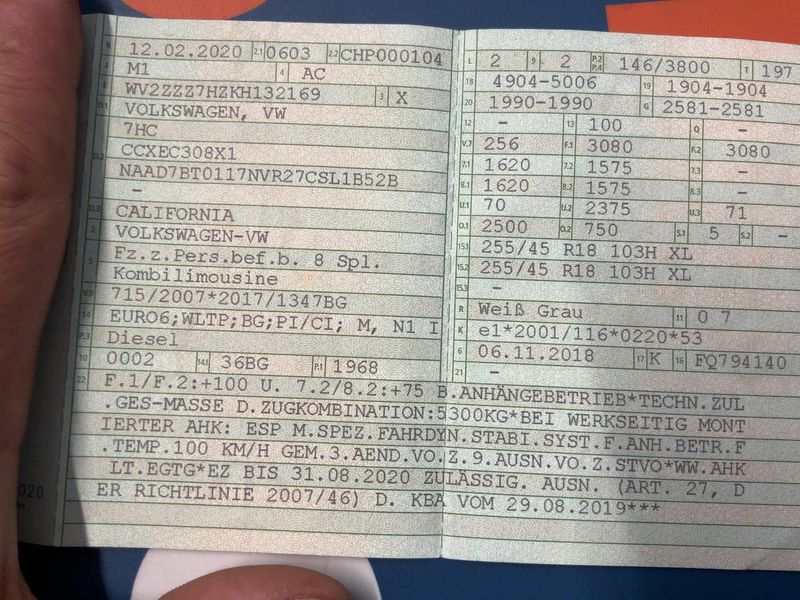 B 12.02.2020 2.1 0603 2.2 CHP000104
J M1 4 AC
E WV2ZZZ7HZKH132169 3 X
D.1 VOLKSWAGEN, VW
7HC
D.2 CCXEC308X1
NAAD7BT0117NVR27CSL1B52B
–
D.3 CALIFORNIA
2 VOLKSWAGEN-VW
5 Fz.z.Pers.bef.b. 8 Spl.
Kombilimousine
V.9 715/2007*2017/1347BG
14 EURO6;WLTP;BG;PI/CI; M, N1 I
P.3 Diesel
10 0002 14.1 36BG P.1 1968
L 2 9 2 P.2 P.4 146/3800 T 197
18 4904-5006 19 1904-1904
20 1990-1990 G 2581-2581
12 – 13 100 Q –
V.7 256 F.1 3080 F.2 3080
7.1 1620 7.2 1575 7.3 –
8.1 1620 8.2 1575 8.3 –
U.1 70 U.2 2375 U.3 71
O.1 2500 O.2 750 S.1 5 S.2 –
15.1 255/45 R18 103H XL
15.2 255/45 R18 103H XL
15.3 –
R Weiß Grau 11 0 7
K e1*2001/116*0220*53
6 06.11.2018 17 K 16 FQ794140
21 –
22 F.1/F.2:+100 U. 7.2/8.2:+75 B.ANHÄNGEBETRIEB*TECHN.ZUL
.GES-MASSE D.ZUGKOMBINATION:5300KG*BEI WERKSEITIG MONT
IERTER AHK: ESP M.SPEZ.FAHRDYN.STABI.SYST.F.ANH.BETR.F
.TEMP.100 KM/H GEM.3.AEND.VO.Z.9.AUSN.VO.Z.STVO*WW.AHK
LT.EGTG*EZ BIS 31.08.2020 ZULÄSSIG. AUSN. (ART. 27, D
ER RICHTLINIE 2007/46) D. KBA VOM 29.08.2019***